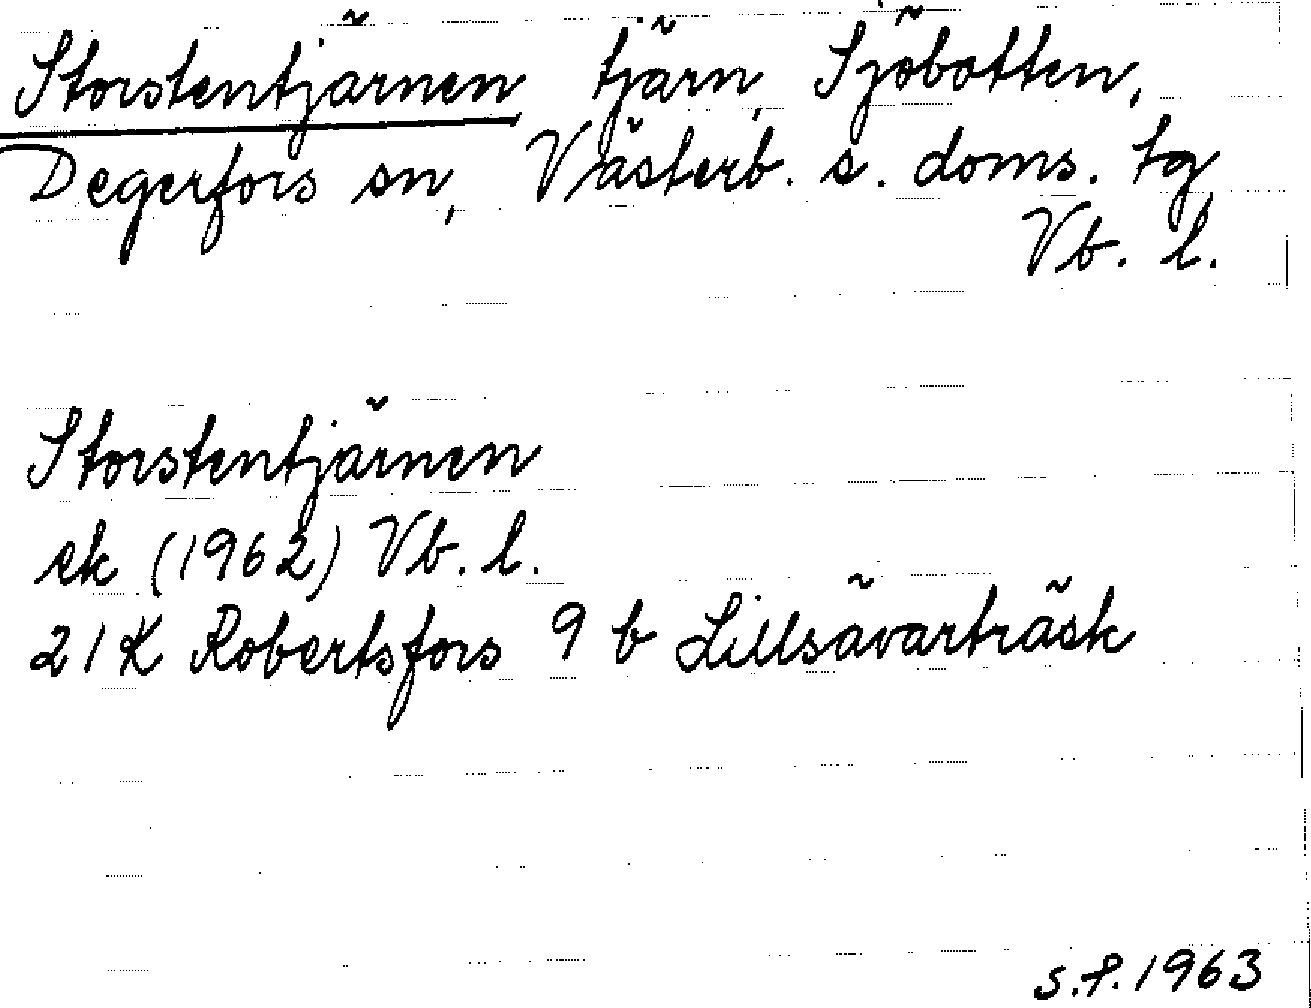 Storstentjärnen tjärn, Sjöbotten,
Degerfors sn, Västerb. s. doms. tg
Vb. l.
Storstentjärnen
ek (1962) Vb. l.
21K Robertsfors 9 b Lillsävarträsk
S.P. 1963